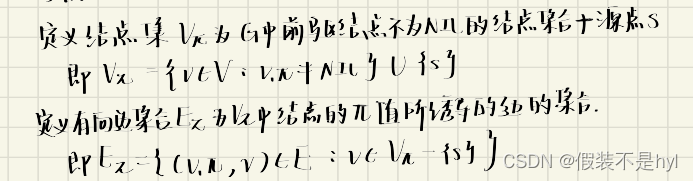 定义结点集 Vπ 为 G中前驱结点不为NIL的结点集合+源点S
即 Vπ = {v∈V : v.π ≠ NIL} ∪ {s}
定义有向边集合 Eπ 为Vπ中结点的π值所诱导的边的集合.
即 Eπ = {(v.π, v) ∈ E : v ∈ Vπ - {s}}
CSDN @假装不是hyl